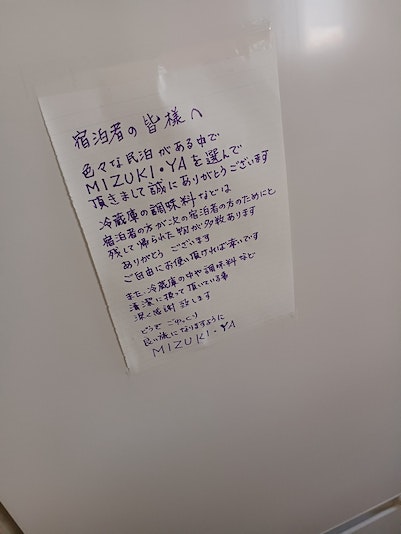 宿泊者の皆様へ
色々な民泊がある中で
MIZUKI・YAを選んで
頂きまして誠にありがとうございます
冷蔵庫の調味料などは
宿泊者の方が次の宿泊者の方のためにと
残して帰られた物が多数あります
ありがとうございます
ご自由にお使い頂ければ幸いです
また、冷蔵庫の中や調味料など
清潔に使って頂いている事
深く感謝致します
どうぞごゆっくり
良い旅になりますように
MIZUKI・YA